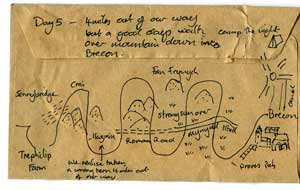 Day 5 - 4 miles out of our way
but a good days walk camp the night
over mountain down into
Brecon.
Fan Frynych
Crai
Sennybridge
strong sun over
Canal
Mynydd Illtud
Roman Road
Trephilip
Farm
we realise taken
a wrong turn 4 miles out
of our way
Drovers Path